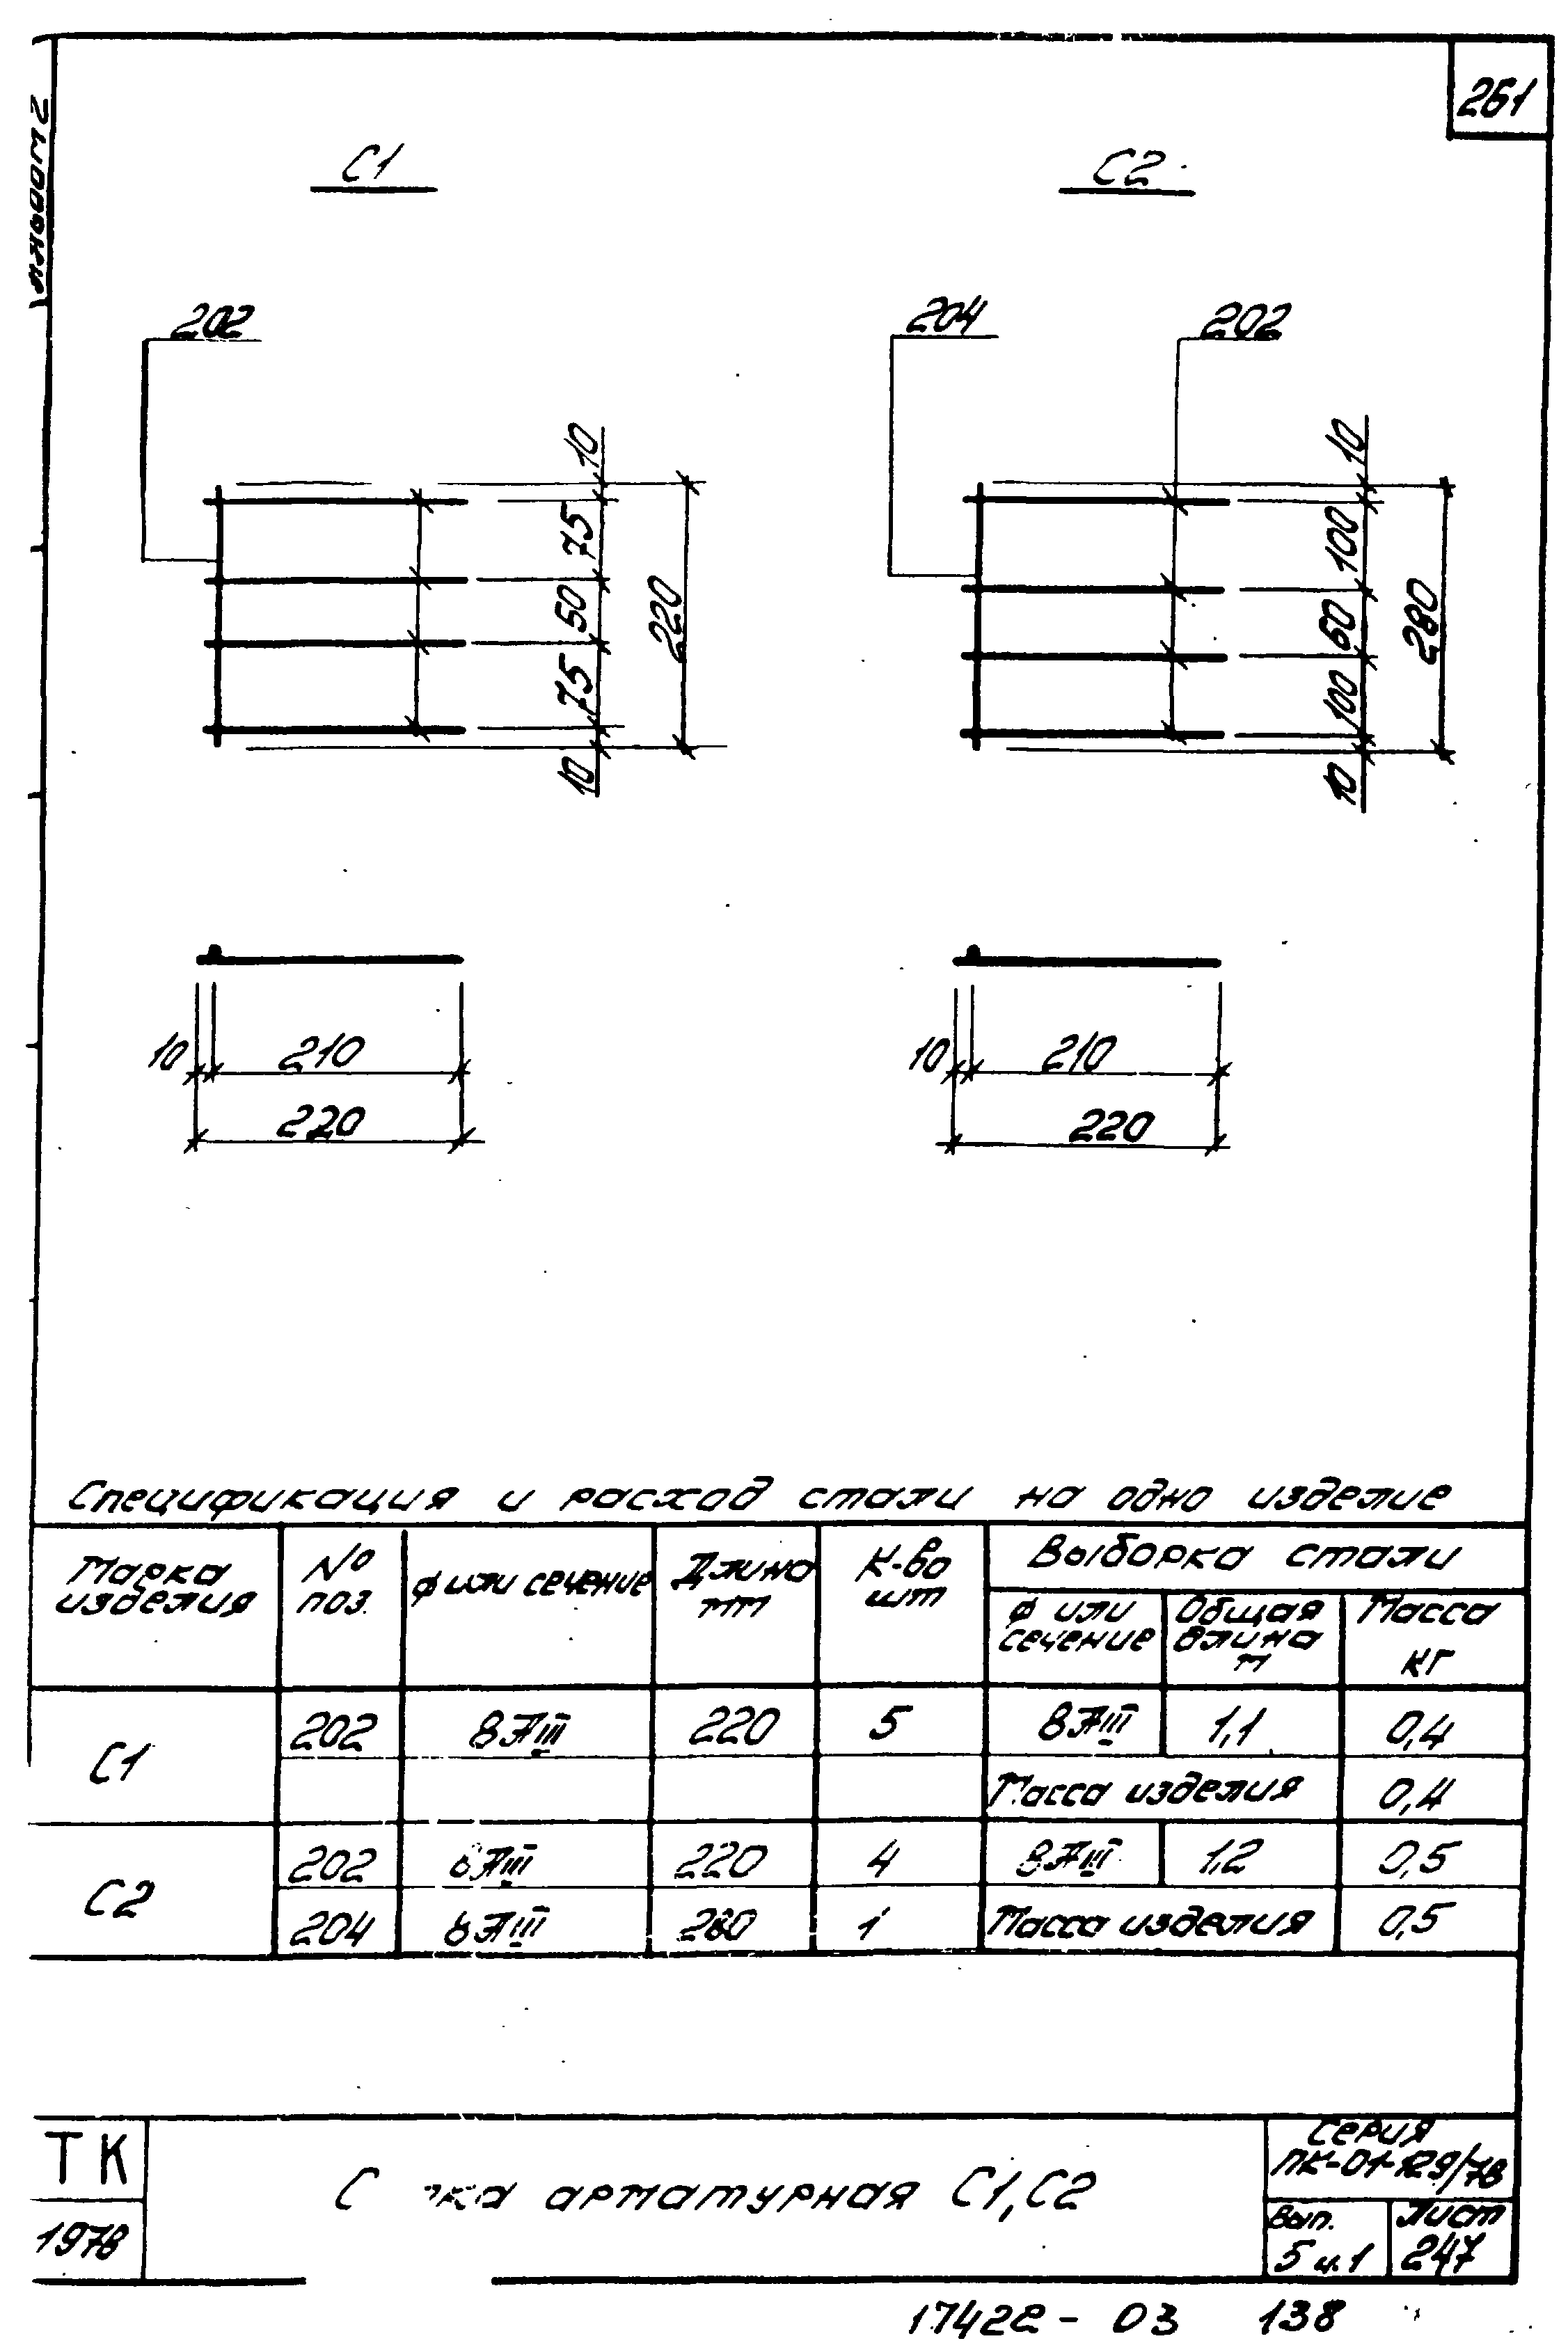 261
С1
С2
202
204
202
10
75
50
75
10
220
10
100
60
100
10
280
10
210
220
10
210
220
Спецификация и расход стали на одно изделие
Марка изделия
№ поз.
ф или сечение
Длина мм
К-во шт
Выборка стали
ф или сечение
Общая длина м
Масса кг
С1
202 8АIII 220 5 8АIII 1,1 0,4
Масса изделия 0,4
С2
202 8АIII 220 4 8АIII 1,2 0,5
204 8АIII 280 1 Масса изделия 0,5
ТК
1978
арматурная С1, С2
Серия
ПК-01-129/78
Вып.
5 ч.1
Лист
247
17422 - 03 138